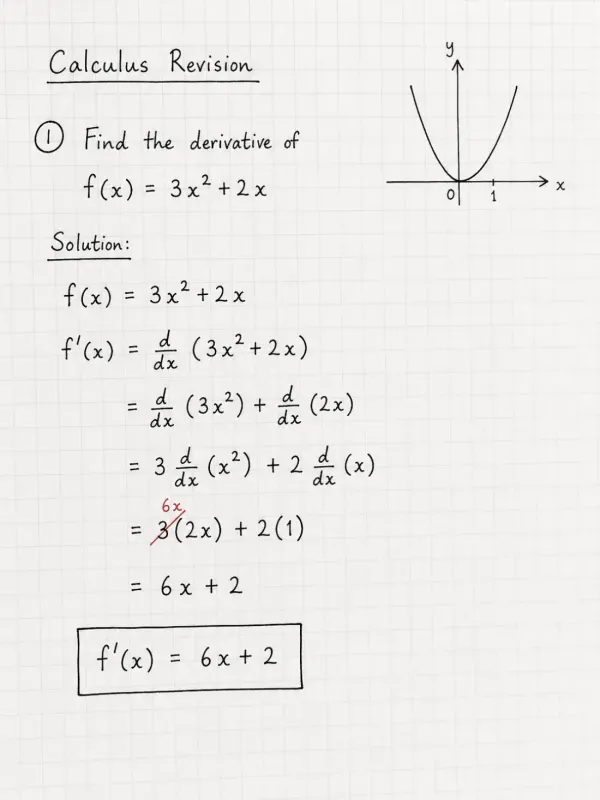 Calculus Revision
① Find the derivative of
f(x) = 3x² + 2x
y
x
0
1
Solution:
f(x) = 3x² + 2x
f'(x) = d/dx (3x² + 2x)
= d/dx (3x²) + d/dx (2x)
= 3 d/dx (x²) + 2 d/dx (x)
6x
= 3(2x) + 2(1)
= 6x + 2
f'(x) = 6x + 2